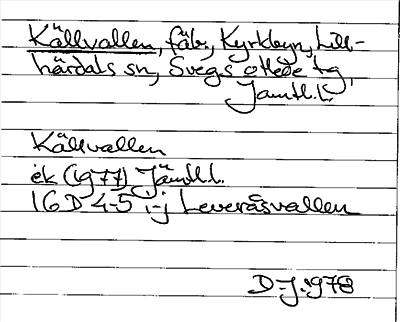 Källvallen, fäb., Kyrkbyn, Lill-
härdals sn, Svegs otlede tg,
Jämtl.l.
Källvallen
ek (1977) Jämtl.l.
16D 4-5 i-j Leveråsvallen
D-J.1978